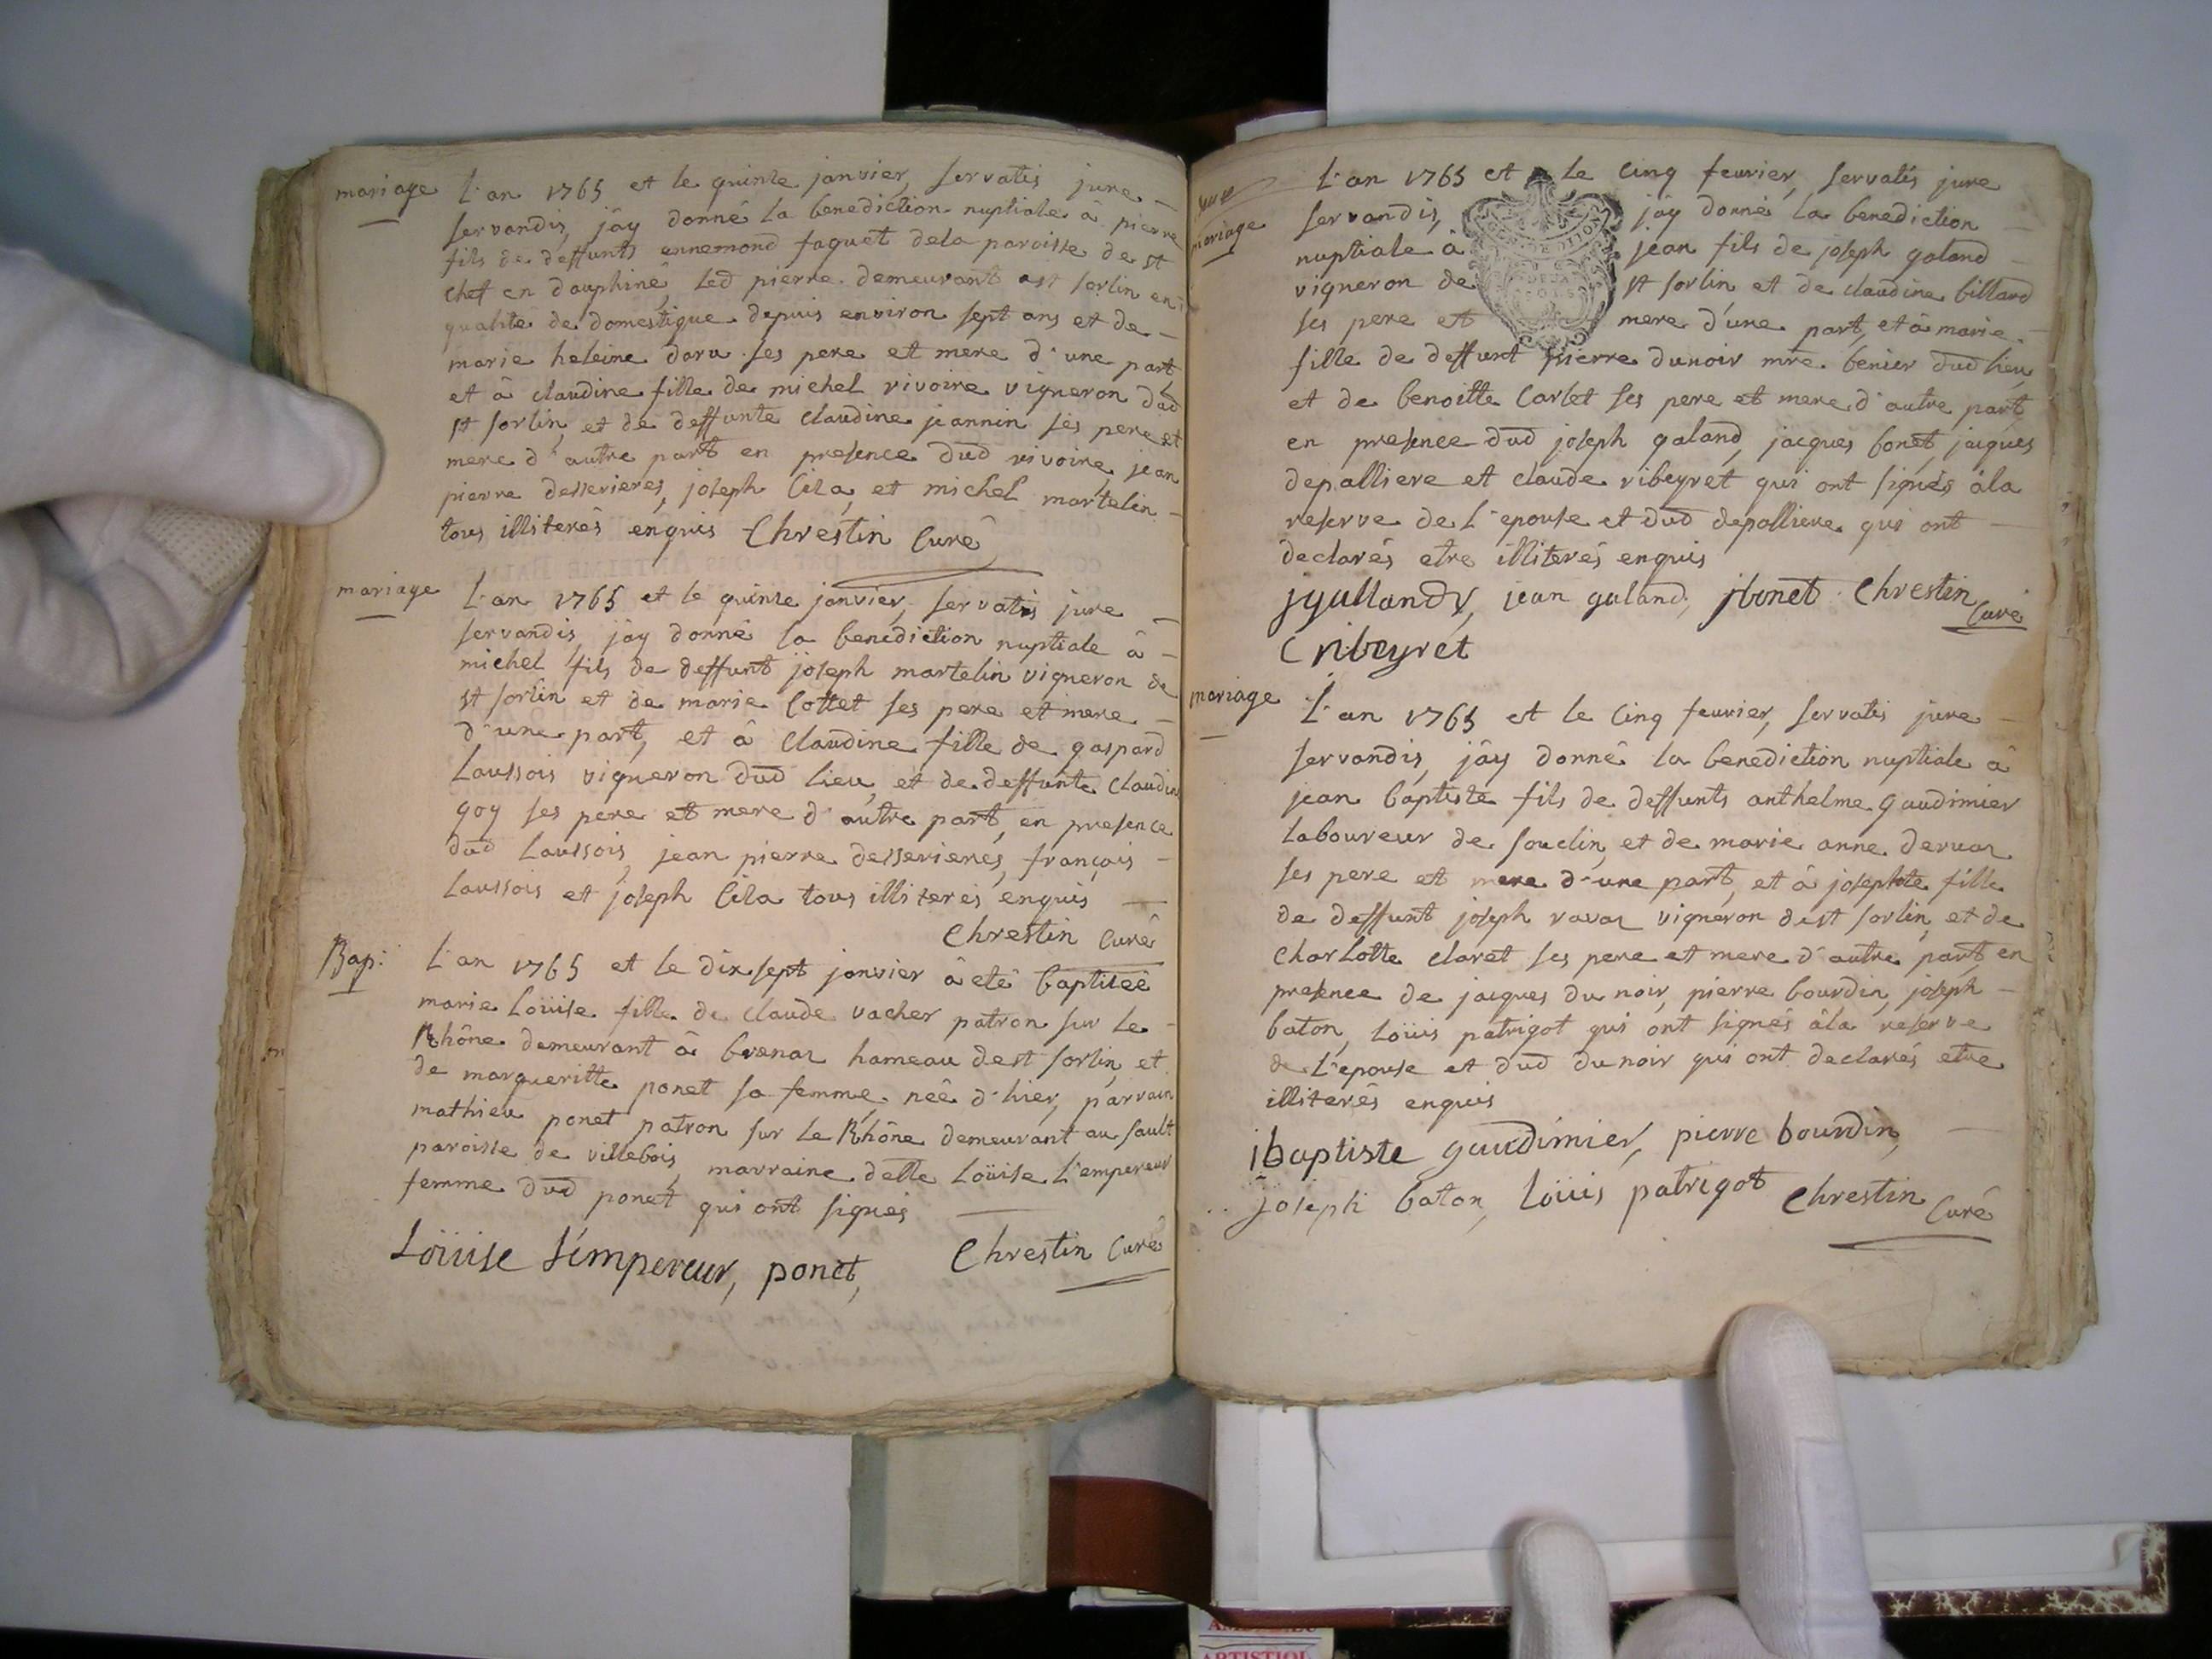 mariage
L'an 1765 et le quinze janvier, servatis jure
servandis, jäy donné la benediction nuptiale â pierre
fils de deffunts ennemond faquet dela paroisse de st
chef en dauphiné, led pierre demeurant a st sorlin en
qualité de domestique depuis environ sept ans et de
marie heleine daru ses pere et mere d'une part
et â claudine fille de michel vivoire vigneron dud
st sorlin, et de deffunte claudine jeannin ses pere et
mere d'autre part en presence dud vivoire, jean
pierre desserieres, joseph Cila, et michel martelin
tous illiterés enquis Chrestin Curé
mariage
L'an 1765 et le quinze janvier, servatis jure
servandis, jäy donné la benediction nuptiale â
michel fils de deffunt joseph martelin vigneron de
st sorlin et de marie Cottet ses pere et mere
d'une part, et â claudine fille de gaspard
Laussois vigneron dud lieu, et de deffunte Claudine
goy ses pere et mere d'autre part, en presence
dud Laussois, jean pierre desserieres, françois
Laussois et joseph Cila tous illiterés enquis
Chrestin Curé
Bap:
L'an 1765 et le dix sept janvier â eté baptiseé
marie Loüise fille de claude vacher patron sur le
Rhône demeurant â brenaz hameau de st sorlin, et
de margueritte ponet sa femme, née d'hier, parrain
mathieu ponet patron sur le Rhône demeurant au sault
paroisse de villebois, marraine delle Loüise L'empereur
femme dud ponet qui ont signés
Loüise L'empereur, ponet, Chrestin Curé
mariage
L'an 1765 et le Cinq feurier, servatis jure
servandis, jäy donné la benediction
nuptiale â jean fils de joseph galand
vigneron de st sorlin et de claudine billard
ses pere et mere d'une part, et â marie
fille de deffunt pierre dunoir mre benier dud lieu,
et de benoitte Carlet ses pere et mere d'autre part,
en presence dud joseph galand, jacques bonet, jacques
depalliere et claude ribeyret qui ont signés âla
reserve de L'epouse et dud depalliere qui ont
declarés etre illiterés enquis
jgallandy, jean galand, jbonet Chrestin
Curé
C ribeyret
mariage
L'an 1765 et le Cinq feurier, servatis jure
servandis, jäy donné la benediction nuptiale â
jean baptiste fils de deffunts anthelme gaudimier
laboureur de souclin, et de marie anne deruaz
ses pere et mere d'une part, et â josephte fille
de deffunt joseph ravaz vigneron de st sorlin, et de
Charlotte claret ses pere et mere d'autre part, en
presence de jacques du noir, pierre bourdin, joseph
baton, Loüis patrigot qui ont signés âla reserve
de L'epouse et dud du noir qui ont declarés etre
illiterés enquis
jbaptiste gaudimier, pierre bourdin,
joseph baton, Loüis patrigot Chrestin Curé